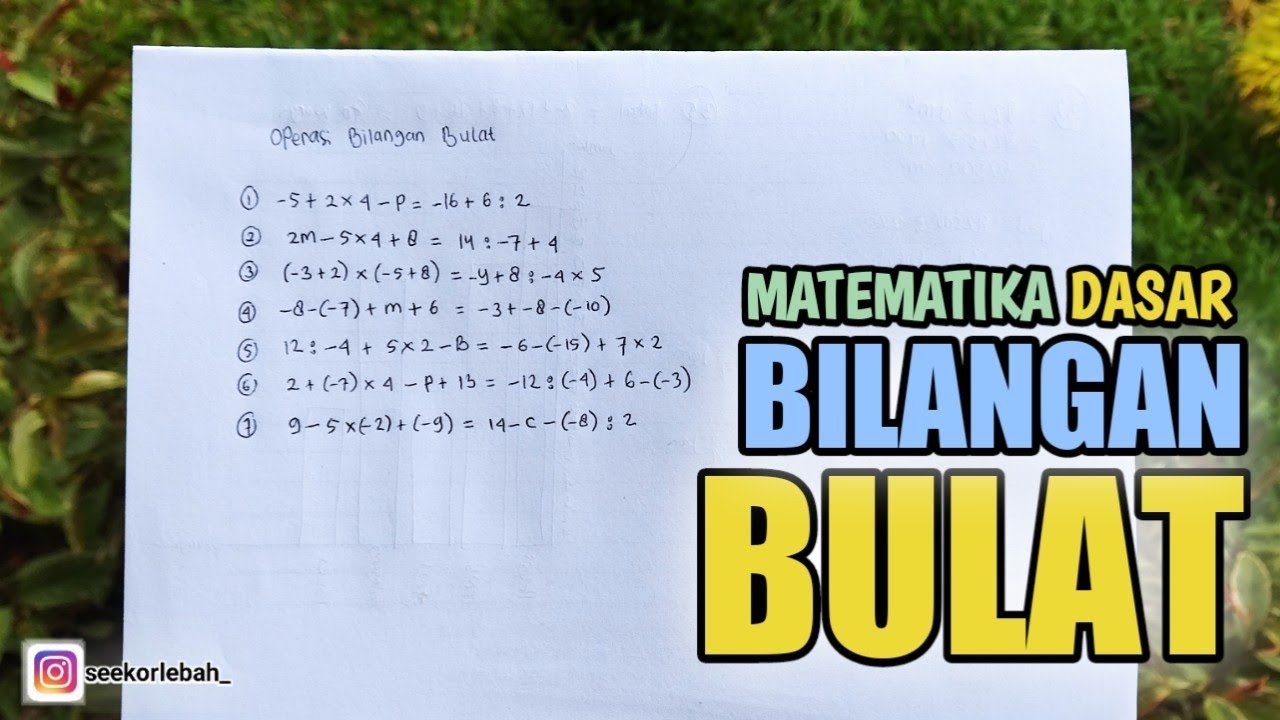 Operasi Bilangan Bulat
① -5 + 2 × 4 - P = -16 + 6 : 2
② 2m - 5 × 4 + 8 = 14 : -7 + 4
③ (-3+2) × (-5+8) = -y + 8 : -4 × 5
④ -8 - (-7) + m + 6 = -3 + -8 - (-10)
⑤ 12 : -4 + 5 × 2 - B = -6 - (-15) + 7 × 2
⑥ 2 + (-7) × 4 - P + 13 = -12 : (-4) + 6 - (-3)
⑦ 9 - 5 × (-2) + (-9) = 14 - C - (-8) : 2
MATEMATIKA DASAR
BILANGAN
BULAT
seekorlebah_